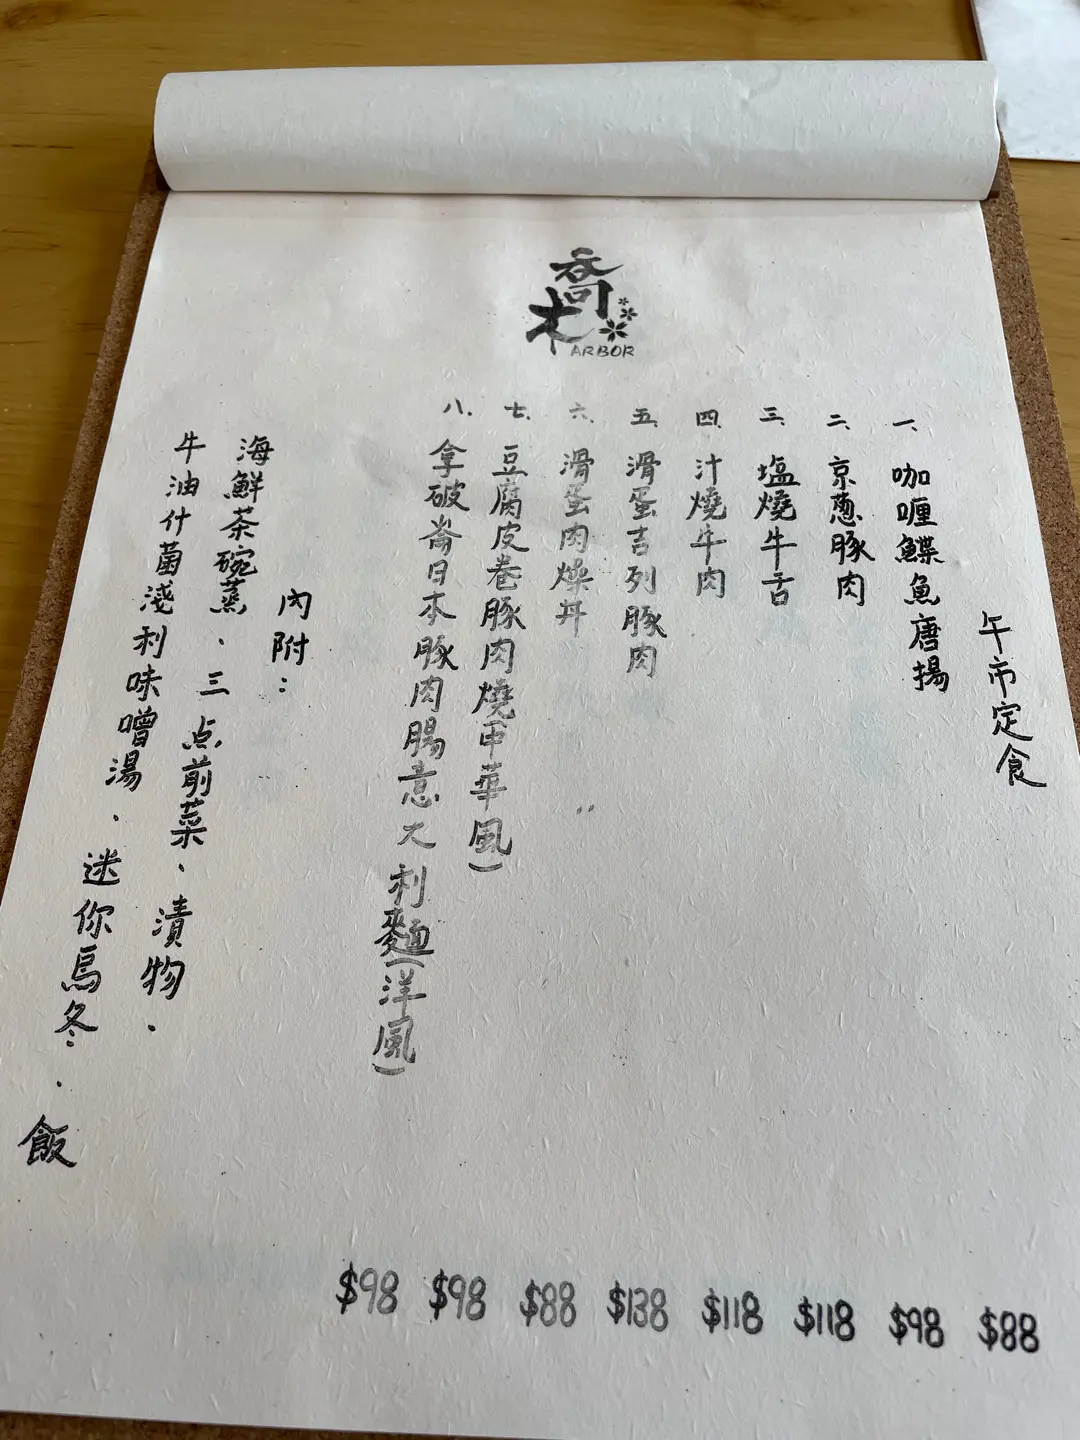 喬木
ARBOR
午市定食
一、咖喱鰈魚唐揚
二、京葱豚肉
三、塩燒牛舌
四、汁燒牛肉
五、滑蛋吉列豚肉
六、滑蛋肉燥丼
七、豆腐皮卷豚肉燒(中華風)
八、拿破崙日本豚肉腸意大利麵(洋風)
內附：
海鮮茶碗蒸、三点前菜、漬物、
牛油什菌淺利味噌湯、迷你烏冬、飯
$98 $98 $88 $138 $118 $118 $98 $88